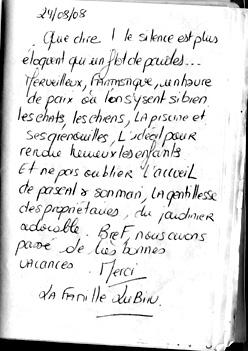 24/08/08
Que dire ! le silence est plus
éloquent qu'un flot de paroles...
Merveilleux, fantastique, un havre
de paix où l'on s'y sent si bien
les chats, les chiens, la piscine et
ses grenouilles, l'idéal pour
rendre heureux les enfants
Et ne pas oublier l'accueil
de pascal & son mari, la gentillesse
des propriétaires, du jardinier
adorable. Bref, nous avons
passé de très bonnes
vacances. Merci
LA FAMILLE